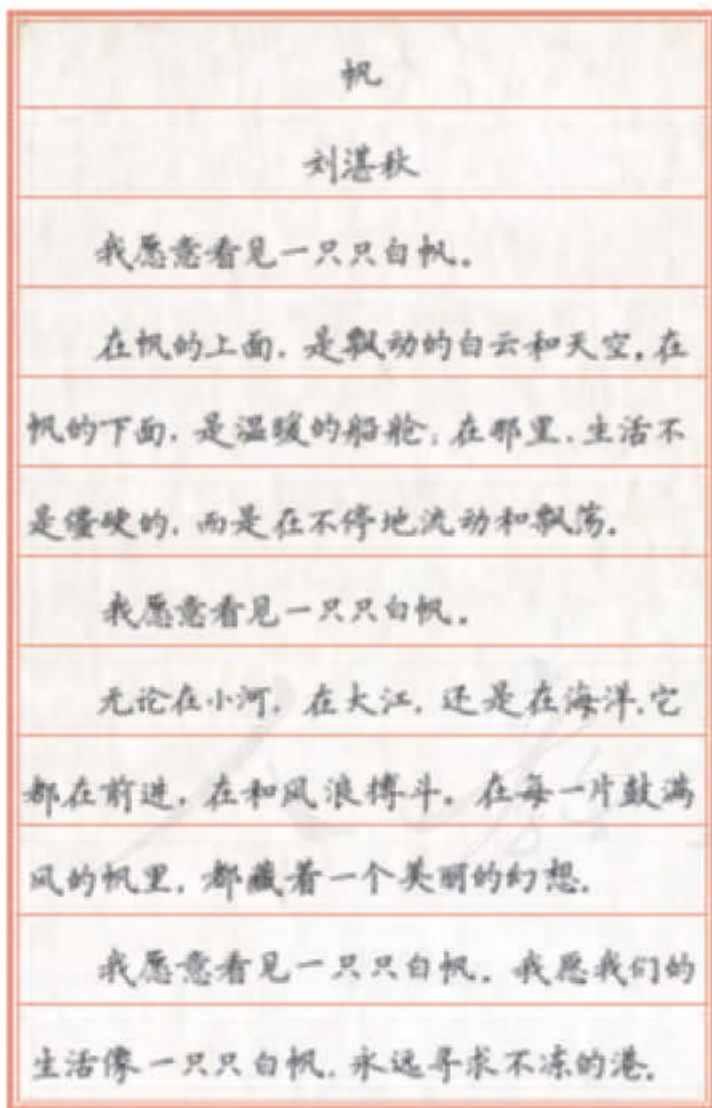 帆
刘湛秋
我愿意看见一只只白帆。
在帆的上面，是飘动的白云和天空，在
帆的下面，是温暖的船舱，在那里，生活不
是僵硬的，而是在不停地流动和飘荡。
我愿意看见一只只白帆。
无论在小河，在大江，还是在海洋，它
都在前进，在和风浪搏斗。在每一片鼓满
风的帆里，都藏着一个美丽的幻想。
我愿意看见一只只白帆。我愿我们的
生活像一只只白帆，永远寻求不冻的港。